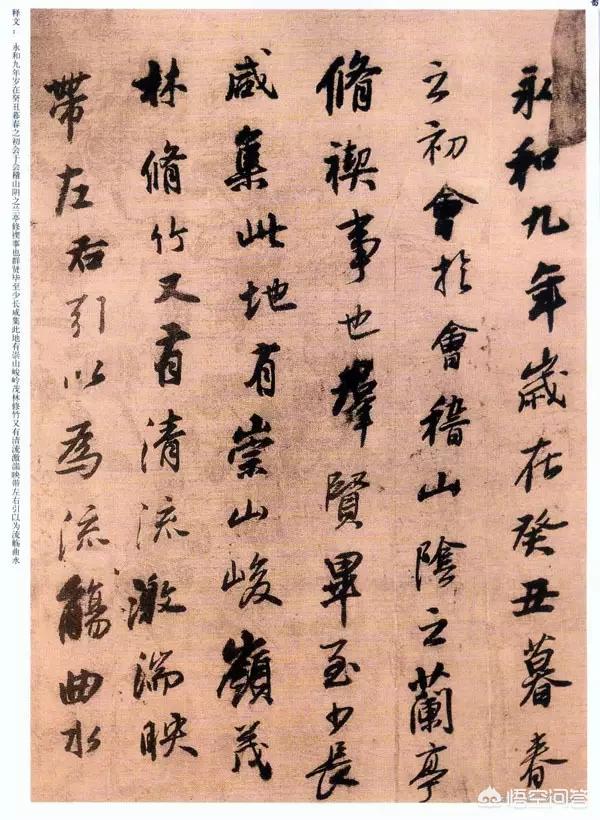 永和九年歲在癸丑暮春
之初會於會稽山陰之蘭亭
脩禊事也羣賢畢至少長
咸集此地有崇山峻嶺茂
林脩竹又有清流激湍映
帶左右引以為流觴曲水
释文：永和九年岁在癸丑暮春之初会于会稽山阴之兰亭修禊事也群贤毕至少长咸集此地有崇山峻岭茂林修竹又有清流激湍映带左右引以为流觞曲水
悟空问答